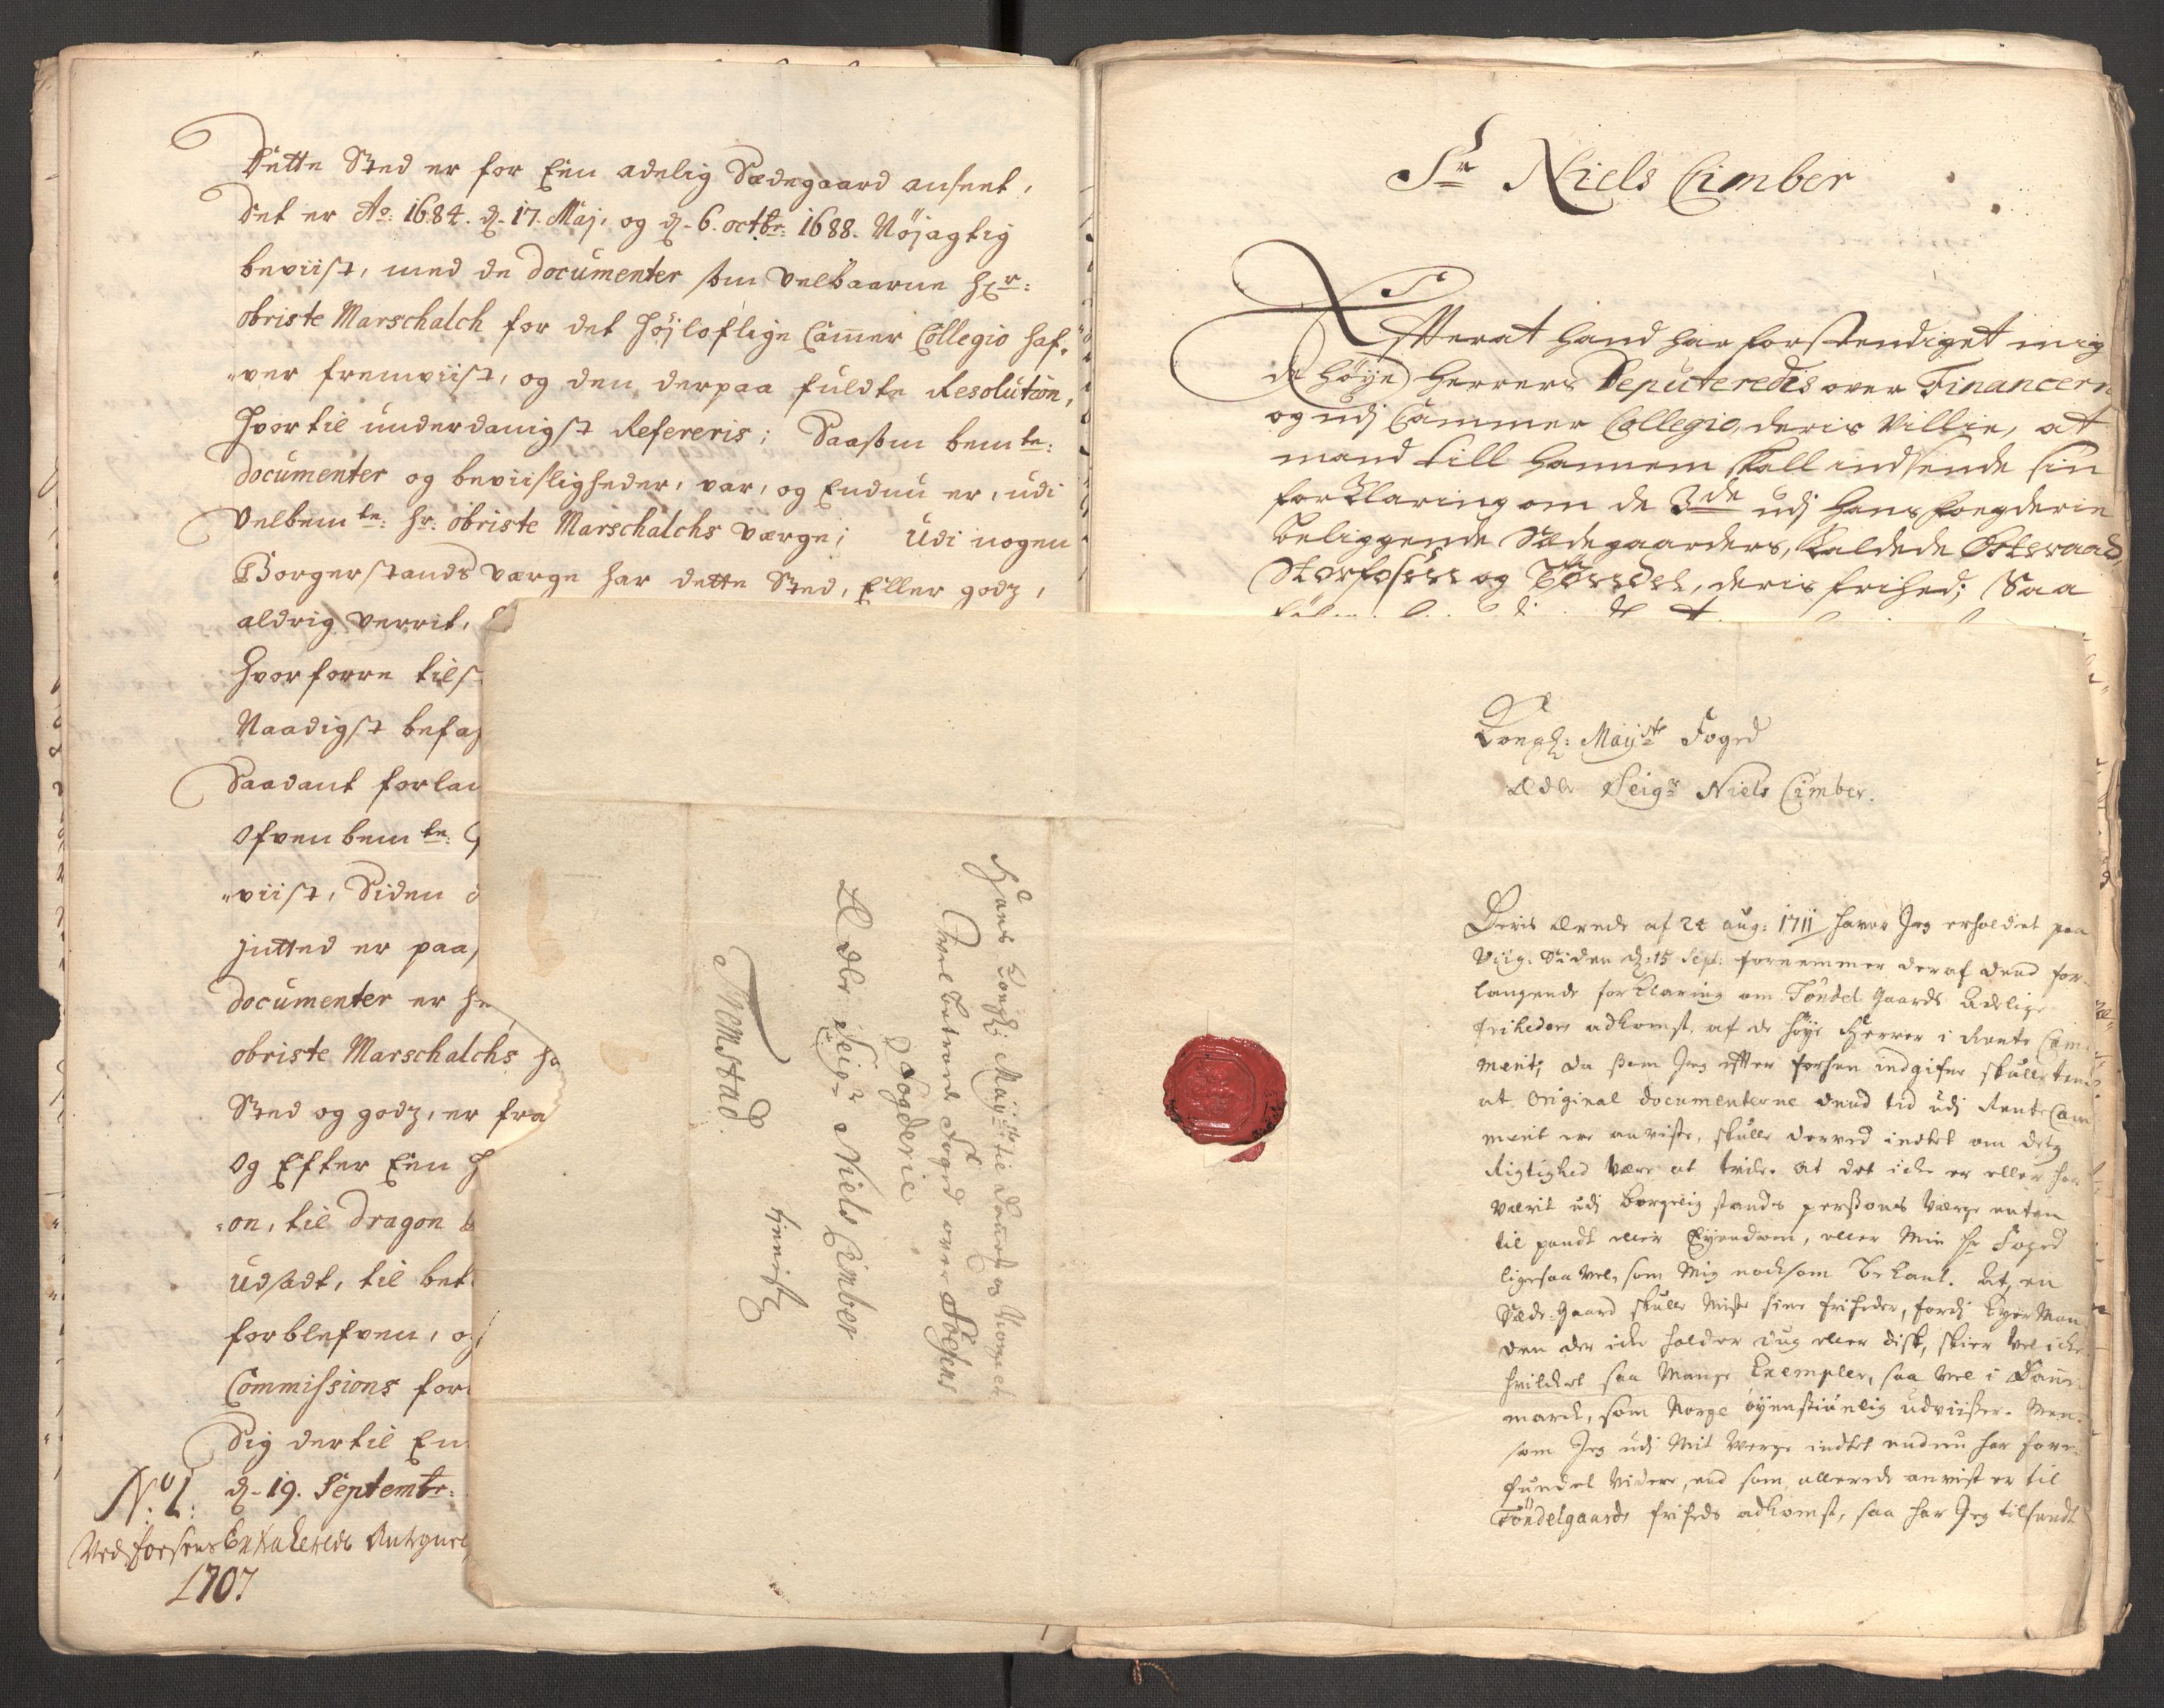 Dette Sted er for Een adelig Sædegaard anseet,
det er Ao: 1684. d. 17. Maj, og d. 6. octbr: 1688. Nöjagtig
beviist, med de documenter som velbaarne Hr:
obriste Marschalch for det höjloflige Cammer Collegio haf-
"ver fremviist, og den derpaa fuldte Resolution,
hvortil underdanigst Refereris; Saasom bemte:
documenter og beviisligheder, var, og Endnu er, udi
velbemte: Hr: obriste Marschalchs værge; Udi nogen
Borgerstands værge har dette Sted, Eller godz,
aldrig verrit,
hvorforre tils
Naadigst befa
Saadant forlan
Ofvenbemte:
"viist, Siden
jntted er paa
documenter er he
obriste Marschalchs ho
Sted og godz, er fra
Og Efter Een H
"on, til dragon
Udsadt, til bet
forblefven, og
Commissions for
Sig dertil En
No 1: d. 19. Septembr:
Ved Fosens Extraherede Antegnel
1707
Sr Niels Cimber
Efterat hand har forstendiget mig
de höye Herrers Deputeredis over Financern
og udj Cammer Collegio, deris Villie, at
mand till hannem skall indsende sin
forklaring om de 3de udj hans fogderie
beliggende Sædegaarders, kaldede Østeraad,
Storfosen og Tøndel, deris frihed; Saa
Kongl: Mayste Foged
Ædle Seigr Niels Cimber.
Deris ærede af 24 aug: 1711 haver Jeg erholdet paa
Viig. Siden d: 15 Sept: fornemmer deraf dend for-
langende forklaring om Töndel Gaards Adelige
friheders adkomst, af de höye Herrer i Rente Cam-
merit; da som Jeg efter forhen indgifne skulle
at original documenterne dend tid udj RenteCam
merit ere anviste, skulle derved indtet om detz
Rigtighed være at tvile. At det icke er eller har
værit udj borgerlig stands persons værge enten
til pandt eller Eyendom, er min Hr Foged
ligesaa vel, som mig nocksom bekant. At, en
Sæde-Gaard skulle miste sine friheder, fordj Eyer Man-
den der icke holder dug eller disk, skier vel icke
hvilcket saa mange Exempler, saa vel i Dann-
marck, som Norge öyensiunlig udviiser. Men
som Jeg udj mit verge indtet endnu har fore-
fundet videre, end som allerede anvist er til
Töndelgaards friheds adkomst, saa har Jeg tilsendt
Hans Kongl: Mayestetz
velbetroede Foged over Fosens
Fogderie
Ædle Seigr Niels Cimber
tienistl
Fremstad.